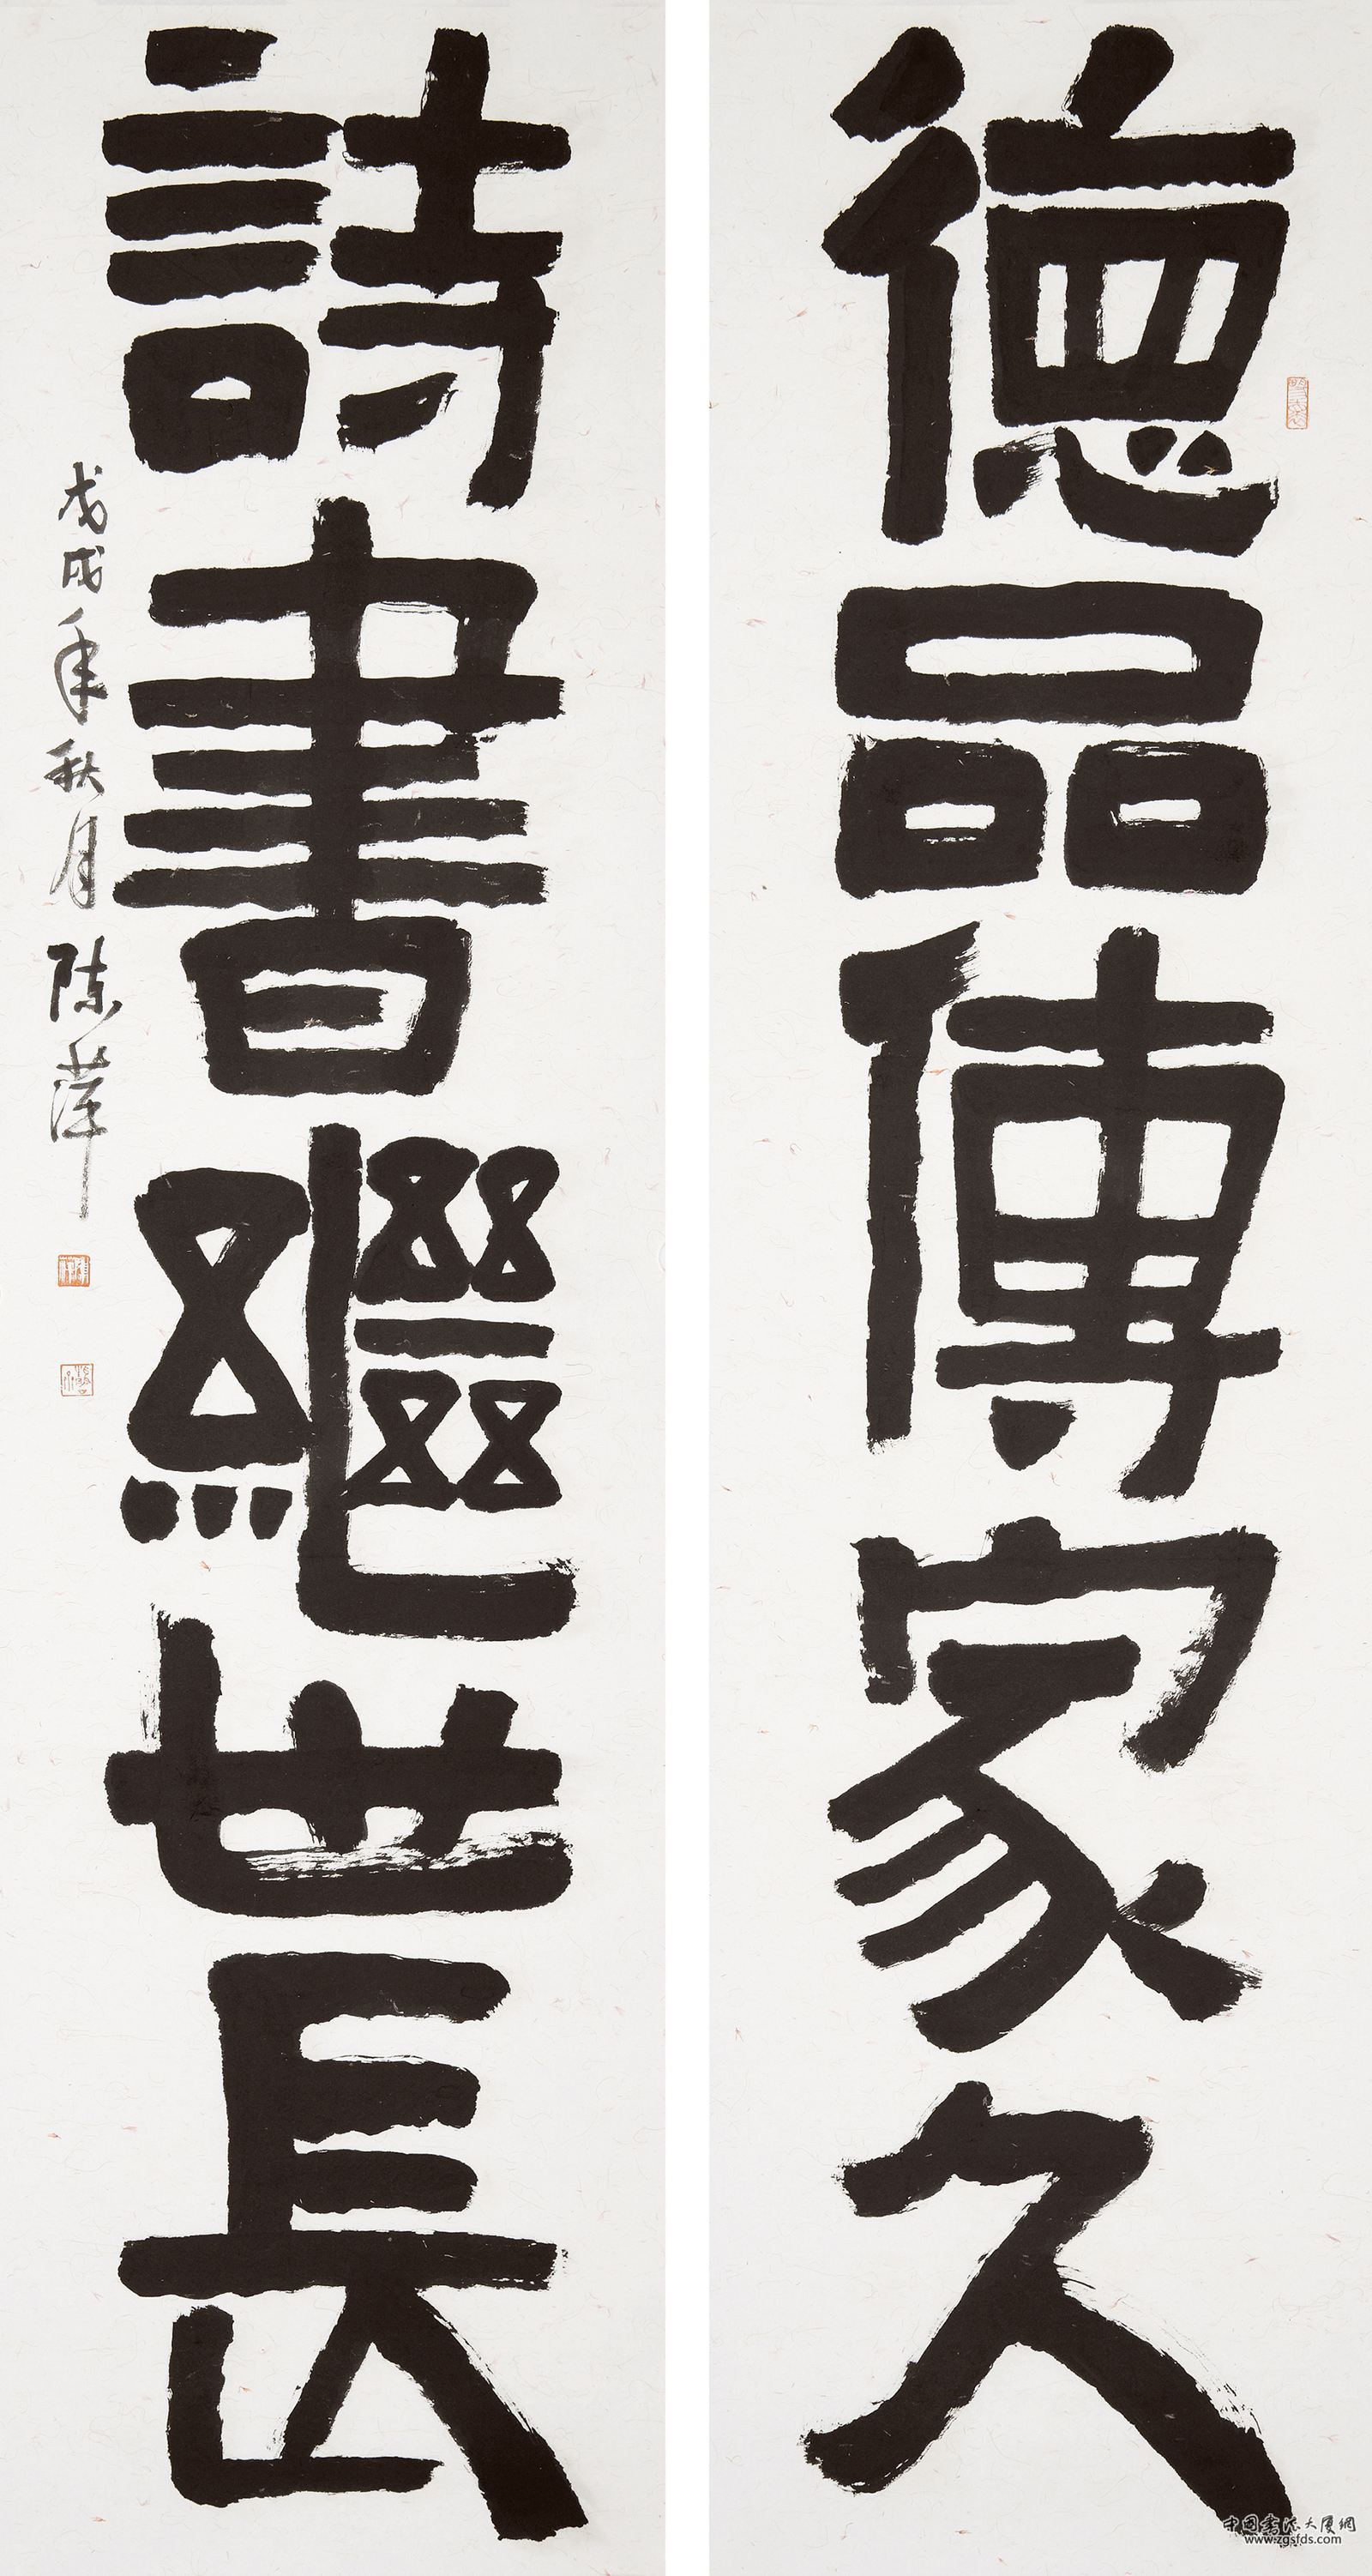 德品傳家久
詩書繼世長
戊戌年秋月 陈萍
中国书法大厦網
www.zgsfds.com